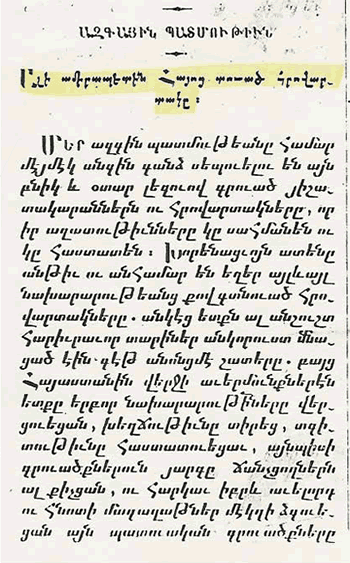 ԱԶԳԱՅԻՆ ՊԱՏՄՈՒԹԻՒՆ
Ալի ամիրապետին Հայոց տուած հրովար-
տակը։
Մեր ազգին պատմութեանը համար
մէյմէկ անգին գանձ սեպուելու են այն
բնիկ և օտար լեզուով գրուած յիշա-
տակարաններն ու հրովարտակները, որ
իր ազատութիւնները կը սահմանեն ու
կը հաստատեն։ Խորենացւոյն ատենը
անթիւ ու անհամար են եղեր այլևայլ
նախարարութեանց քովգտնուած հրո-
վարտակները. անկէց ետքն ալ անշուշտ
հարիւրաւոր տարիներ անկորուստ մնա-
ցած էին գէթ անոնցմէ շատերը. բայց
Հայաստանին վերջի աւերմունքներէն
ետքը երբոր նախարարութիւնները վեր-
ցուեցան, խեղճութիւնը տիրեց, տգի-
տութիւնը հաստատուեցաւ, այնպիսի
գրուածքներուն յարգը ճանչցողներն
ալ քիչցան, ու հարկաւ իբրև աւելորդ
ու հնոտի մագաղաթներ մէկդի ձգուե-
ցան այն պատուական գրուածքները